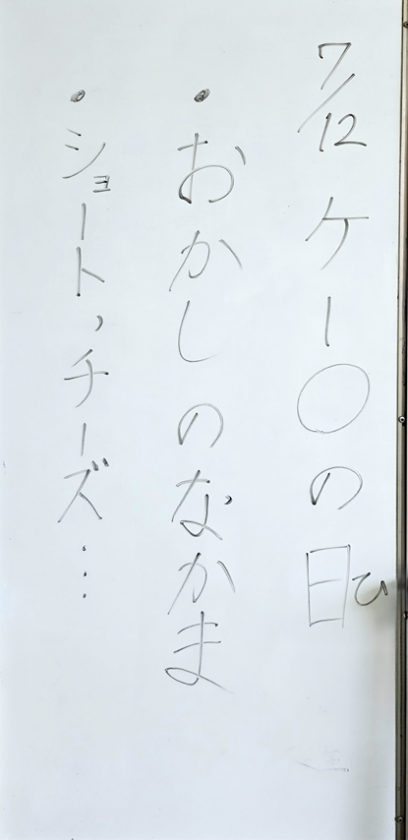 7/12 ケー○の日
ひ
・おかしのなかま
・ショート,チーズ…